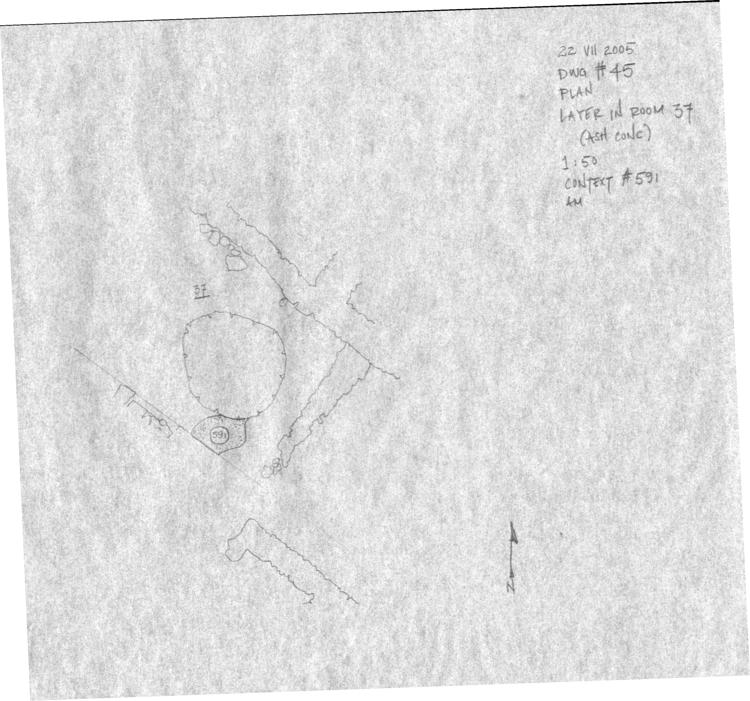 22 VII 2005
DWG #45
PLAN
LAYER IN ROOM 37
(ASH CONC)
1:50
CONTEXT #591
AM
37
591
N